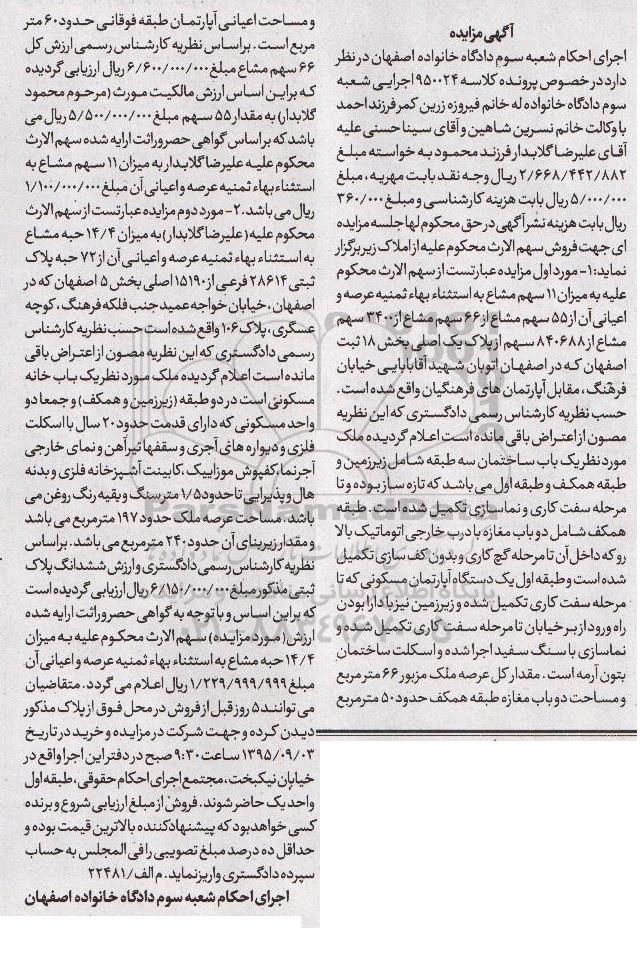 آگهی مزایده
اجرای احکام شعبه سوم دادگاه خانواده اصفهان در نظر
دارد در خصوص پرونده کلاسه ۹۵۰۰۲۴ اجرایی شعبه
سوم دادگاه خانواده له خانم فیروزه زرین کمر فرزند احمد
با وکالت خانم نسرین شاهین و آقای سینا حسنی علیه
آقای علیرضا گلابدار فرزند محمود به خواسته مبلغ
۲/۶۶۸/۴۴۲/۸۸۲ ریال وجه نقد بابت مهریه، مبلغ
۵/۰۰۰/۰۰۰ ریال بابت هزینه کارشناسی و مبلغ ۳۶۰/۰۰۰
ریال بابت هزینه نشر آگهی در حق محکوم لها جلسه مزایده
ای جهت فروش سهم الارث محکوم علیه از املاک زیر برگزار
نماید: ۱- مورد اول مزایده عبارتست از سهم الارث محکوم
علیه به میزان ۱۱ سهم مشاع به استثناء بهاء ثمنیه عرصه و
اعیانی آن از ۵۵ سهم مشاع از ۶۶ سهم مشاع از ۳۴۰۰ سهم
مشاع از ۸۴۰۶۸۸ سهم از پلاک یک اصلی بخش ۱۸ ثبت
اصفهان که در اصفهان اتوبان شهید آقابابایی خیابان
فرهنگ، مقابل آپارتمان های فرهنگیان واقع شده است.
حسب نظریه کارشناس رسمی دادگستری که این نظریه
مصون از اعتراض باقی مانده است اعلام گردیده ملک
مورد نظر یک باب ساختمان سه طبقه شامل زیرزمین و
طبقه همکف و طبقه اول می باشد که تازه ساز بوده و تا
مرحله سفت کاری و نماسازی تکمیل شده است. طبقه
همکف شامل دو باب مغازه با درب خارجی اتوماتیک بالا
رو که داخل آن تا مرحله گچ کاری و بدون کف سازی تکمیل
شده است و طبقه اول یک دستگاه آپارتمان مسکونی که تا
مرحله سفت کاری تکمیل شده و زیرزمین نیز با دارا بودن
راه ورود از بر خیابان تا مرحله سفت کاری تکمیل شده و
نماسازی با سنگ سفید اجرا شده و اسکلت ساختمان
بتون آرمه است. مقدار کل عرصه ملک مزبور ۶۶ متر مربع
و مساحت دو باب مغازه طبقه همکف حدود ۵۰ متر مربع
و مساحت اعیانی آپارتمان طبقه فوقانی حدود ۶۰ متر
مربع است. براساس نظریه کارشناس رسمی ارزش کل
۶۶ سهم مشاع مبلغ ۶/۶۰۰/۰۰۰/۰۰۰ ریال ارزیابی گردیده
که براین اساس ارزش مالکیت مورث (مرحوم محمود
گلابدار) به مقدار ۵۵ سهم مبلغ ۵/۵۰۰/۰۰۰/۰۰۰ ریال می
باشد که براساس گواهی حصر وراثت ارایه شده سهم الارث
محکوم علیه علیرضا گلابدار به میزان ۱۱ سهم مشاع به
استثناء بهاء ثمنیه عرصه واعیانی آن مبلغ ۱/۱۰۰/۰۰۰/۰۰۰
ریال می باشد. ۲- مورد دوم مزایده عبارتست از سهم الارث
محکوم علیه (علیرضا گلابدار) به میزان ۱۴/۴ حبه مشاع
به استثناء بهاء ثمنیه عرصه و اعیانی آن از ۷۲ حبه پلاک
ثبتی ۲۸۶۱۴ فرعی از ۱۵۱۹۰ اصلی بخش ۵ اصفهان که در
اصفهان، خیابان خواجه عمید جنب فلکه فرهنگ، کوچه
عسگری، پلاک ۱۰۶ واقع شده است حسب نظریه کارشناس
رسمی دادگستری که این نظریه مصون از اعتراض باقی
مانده است اعلام گردیده ملک مورد نظر یک باب خانه
مسکونی است در دو طبقه (زیرزمین و همکف) و جمعا دو
واحد مسکونی که دارای قدمت حدود ۲۰ سال با اسکلت
فلزی و دیواره های آجری و سقفها تیرآهن و نمای خارجی
آجرنما، کفپوش موزاییک، کابینت آشپزخانه فلزی و بدنه
هال و پذیرایی تا حدود ۱/۵ متر سنگ و بقیه رنگ روغن می
باشد. مساحت عرصه ملک حدود ۱۹۷ متر مربع می باشد
و مقدار زیربنای آن حدود ۲۴۰ متر مربع می باشد. براساس
نظریه کارشناس رسمی دادگستری و ارزش ششدانگ پلاک
ثبتی مذکور مبلغ ۶/۱۵۰/۰۰۰/۰۰۰ ریال ارزیابی گردیده است
که براین اساس و با توجه به گواهی حصر وراثت ارایه شده
ارزش (مورد مزایده) سهم الارث محکوم علیه به میزان
۱۴/۴ حبه مشاع به استثناء بهاء ثمنیه عرصه و اعیانی آن
مبلغ ۱/۲۲۹/۹۹۹/۹۹۹ ریال اعلام می گردد. متقاضیان
می توانند ۵ روز قبل از فروش در محل فوق از پلاک مذکور
دیدن کرده و جهت شرکت در مزایده و خرید در تاریخ
۱۳۹۵/۰۹/۰۳ ساعت ۹:۳۰ صبح در دفتر این اجرا واقع در
خیابان نیکبخت، مجتمع اجرای احکام حقوقی، طبقه اول
واحد یک حاضر شوند. فروش از مبلغ ارزیابی شروع و برنده
کسی خواهد بود که پیشنهادکننده بالاترین قیمت بوده و
حداقل ده درصد مبلغ تصویبی را فی المجلس به حساب
سپرده دادگستری واریز نماید. م الف/ ۲۲۴۸۱
اجرای احکام شعبه سوم دادگاه خانواده اصفهان
ParsNamadData